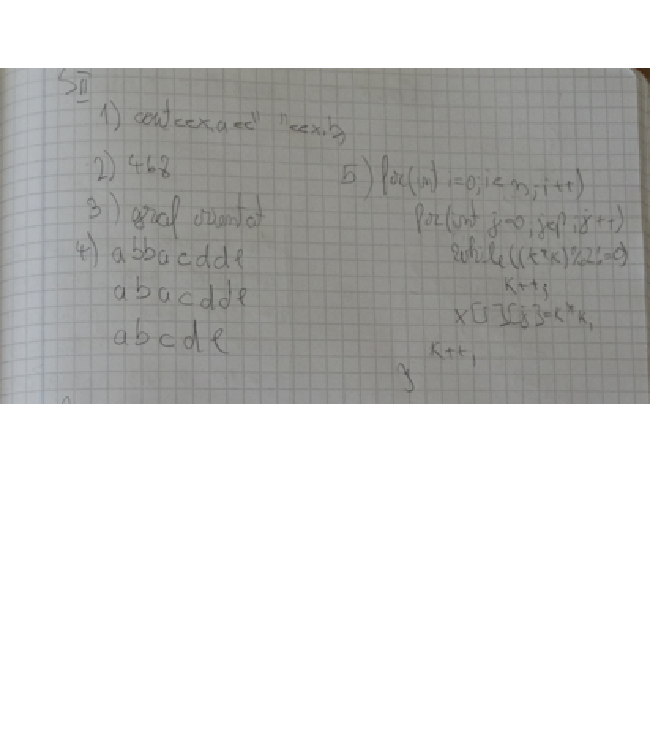 SII
1) cout<<x.a<<" "<<x.b;
2) 468
3) graf orientat
4) abbacdde
abacdde
abcde
5) for(int i=0;i<n;i++)
for(int j=0;j<p;j++)
while((k*k)%2!=0)
k++;
x[i][j]=k*k;
k++;
}